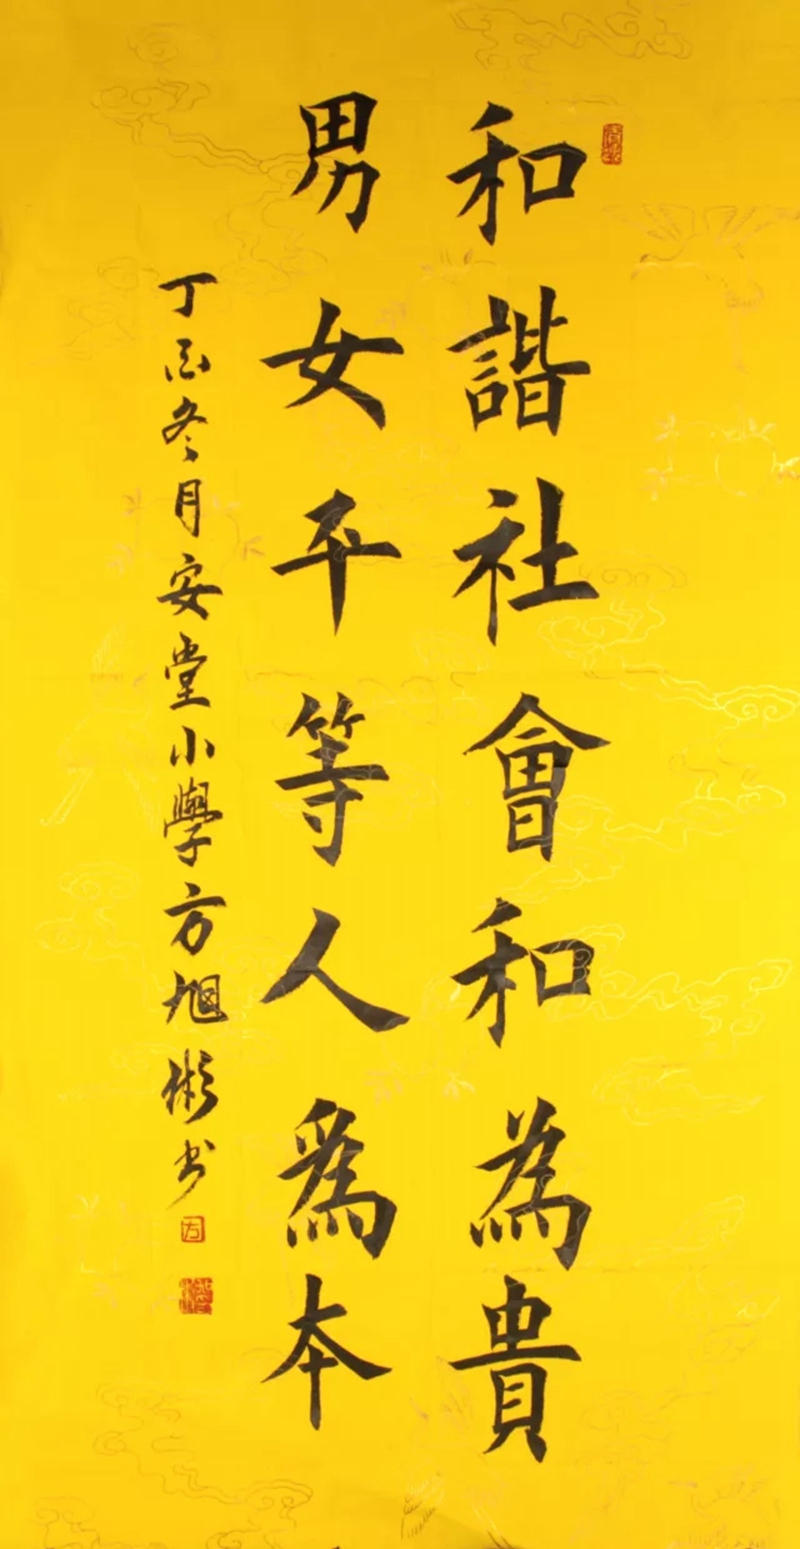 和諧社會和為貴
男女平等人爲本
丁酉冬月安堂小學方旭彬书
方